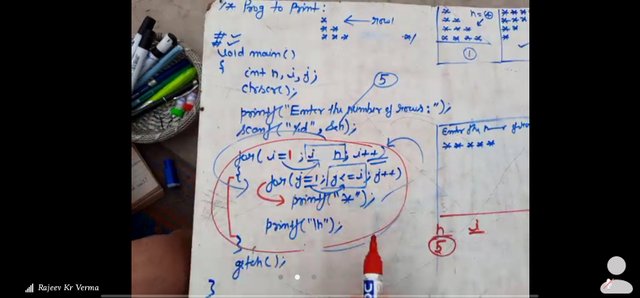 /* Prog to Print:
* ← row 1
* *
* * *
#
#
void main()
{
int n, i, j;
clrscr();
printf("Enter the number of rows:");
scanf("%d", &n);
5
for( i=1; i n; i++)
{
for(j=1; j<=i; j++)
printf("*");
printf("\n");
}
getch();
}
*
* *
* * *
* * * *
n=4
1
Enter the n
* * * * *
n i
5
Rajeev Kr Verma